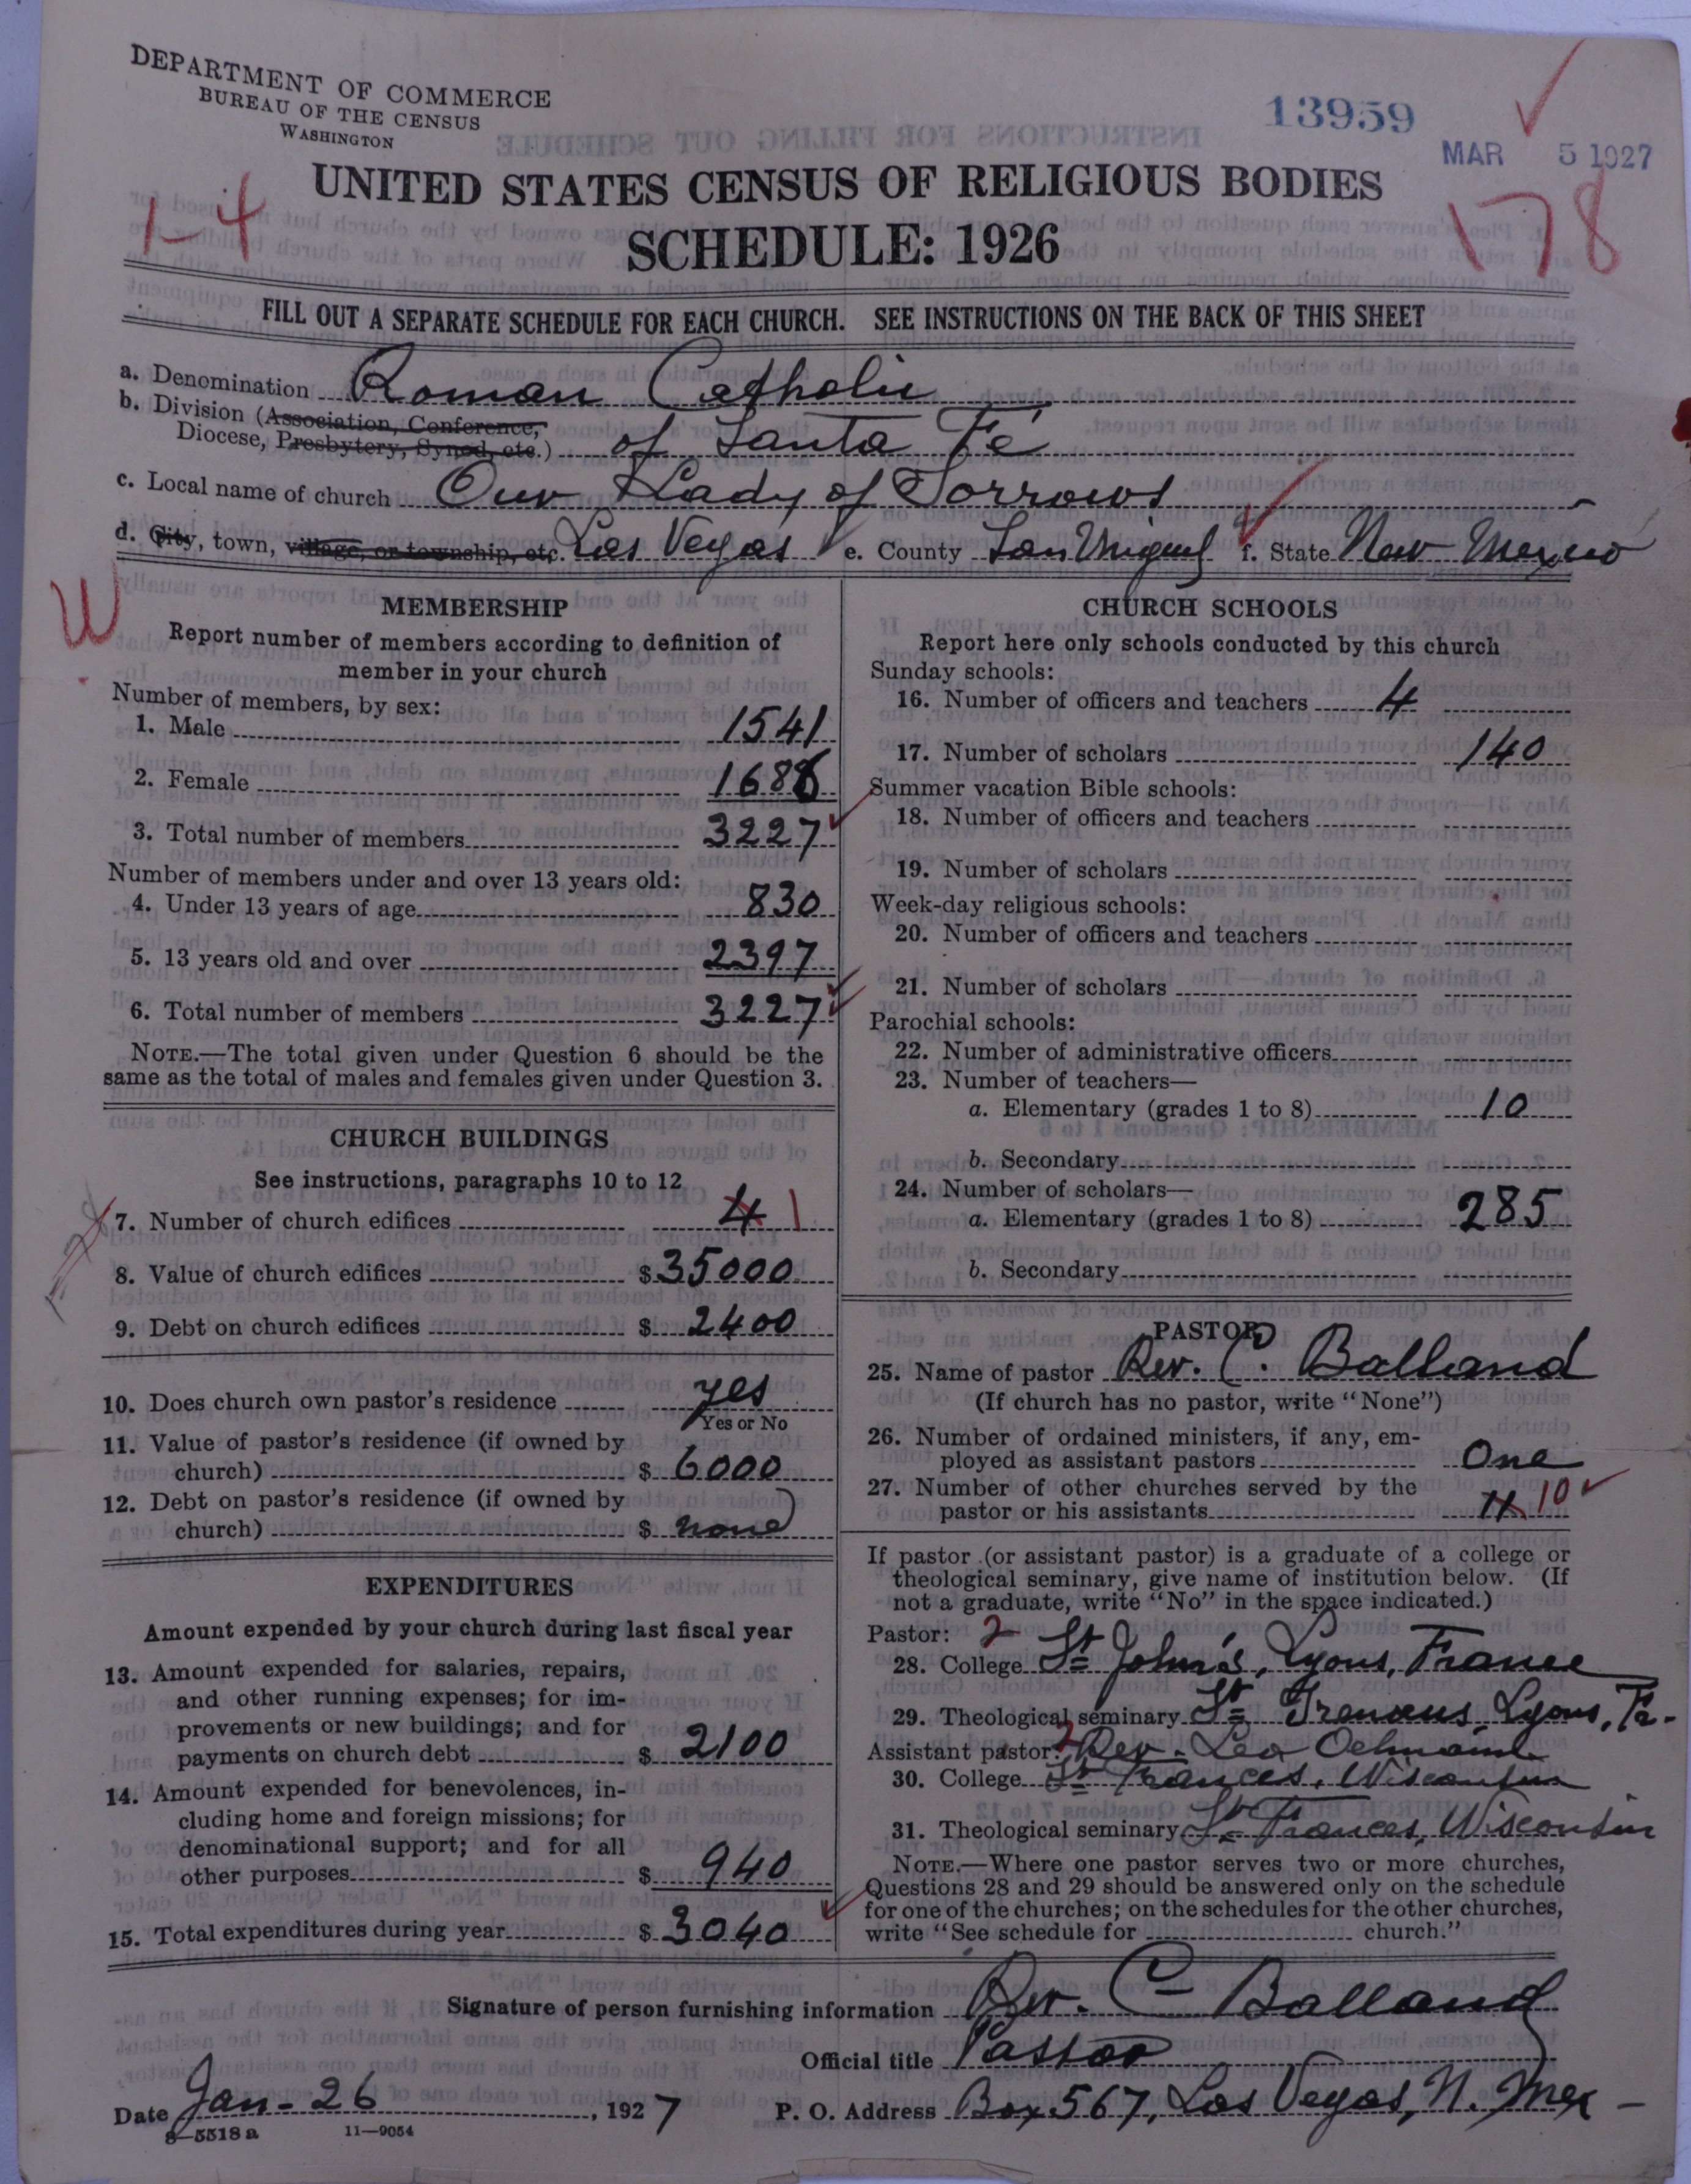 DEPARTMENT OF COMMERCE
BUREAU OF THE CENSUS
WASHINGTON
13959
MAR 5 1927
UNITED STATES CENSUS OF RELIGIOUS BODIES
1-4
178
SCHEDULE: 1926
FILL OUT A SEPARATE SCHEDULE FOR EACH CHURCH. SEE INSTRUCTIONS ON THE BACK OF THIS SHEET
a. Denomination Roman Catholic
b. Division (Association, Conference,
Diocese, Presbytery, Synod, etc.) of Santa Fé
c. Local name of church Our Lady of Sorrows
d. City, town, village, or township, etc. Las Vegas e. County San Miguel f. State New Mexico
W
MEMBERSHIP
Report number of members according to definition of
member in your church
Number of members, by sex:
1. Male 1541
2. Female 1686
3. Total number of members 3227
Number of members under and over 13 years old:
4. Under 13 years of age 830
5. 13 years old and over 2397
6. Total number of members 3227
NOTE.—The total given under Question 6 should be the
same as the total of males and females given under Question 3.
CHURCH BUILDINGS
See instructions, paragraphs 10 to 12
7. Number of church edifices 4 1
8. Value of church edifices $ 35000
9. Debt on church edifices $ 2400
10. Does church own pastor's residence yes
Yes or No
11. Value of pastor's residence (if owned by
church) $ 6000
12. Debt on pastor's residence (if owned by
church) $ none
EXPENDITURES
Amount expended by your church during last fiscal year
13. Amount expended for salaries, repairs,
and other running expenses; for im-
provements or new buildings; and for
payments on church debt $ 2100
14. Amount expended for benevolences, in-
cluding home and foreign missions; for
denominational support; and for all
other purposes $ 940
15. Total expenditures during year $ 3040
CHURCH SCHOOLS
Report here only schools conducted by this church
Sunday schools:
16. Number of officers and teachers 4
17. Number of scholars 140
Summer vacation Bible schools:
18. Number of officers and teachers
19. Number of scholars
Week-day religious schools:
20. Number of officers and teachers
21. Number of scholars
Parochial schools:
22. Number of administrative officers
23. Number of teachers—
a. Elementary (grades 1 to 8) 10
b. Secondary
24. Number of scholars—
a. Elementary (grades 1 to 8) 285
b. Secondary
PASTOR
25. Name of pastor Rev. C. Balland
(If church has no pastor, write "None")
26. Number of ordained ministers, if any, em-
ployed as assistant pastors One
27. Number of other churches served by the
pastor or his assistants 11 10
If pastor (or assistant pastor) is a graduate of a college or
theological seminary, give name of institution below. (If
not a graduate, write "No" in the space indicated.)
Pastor: 2
28. College St John's, Lyons, France
29. Theological seminary St Irenaeus, Lyons, Fr.
Assistant pastor: 2 Rev. Leo
30. College St Frances, Wisconsin
31. Theological seminary St Frances, Wisconsin
NOTE.—Where one pastor serves two or more churches,
Questions 28 and 29 should be answered only on the schedule
for one of the churches; on the schedules for the other churches,
write "See schedule for church."
Signature of person furnishing information Rev. C Balland
Official title Pastor
Date Jan- 26, 1927
P. O. Address Box 567, Las Vegas, N. Mex -
8-5518 a 11-9054